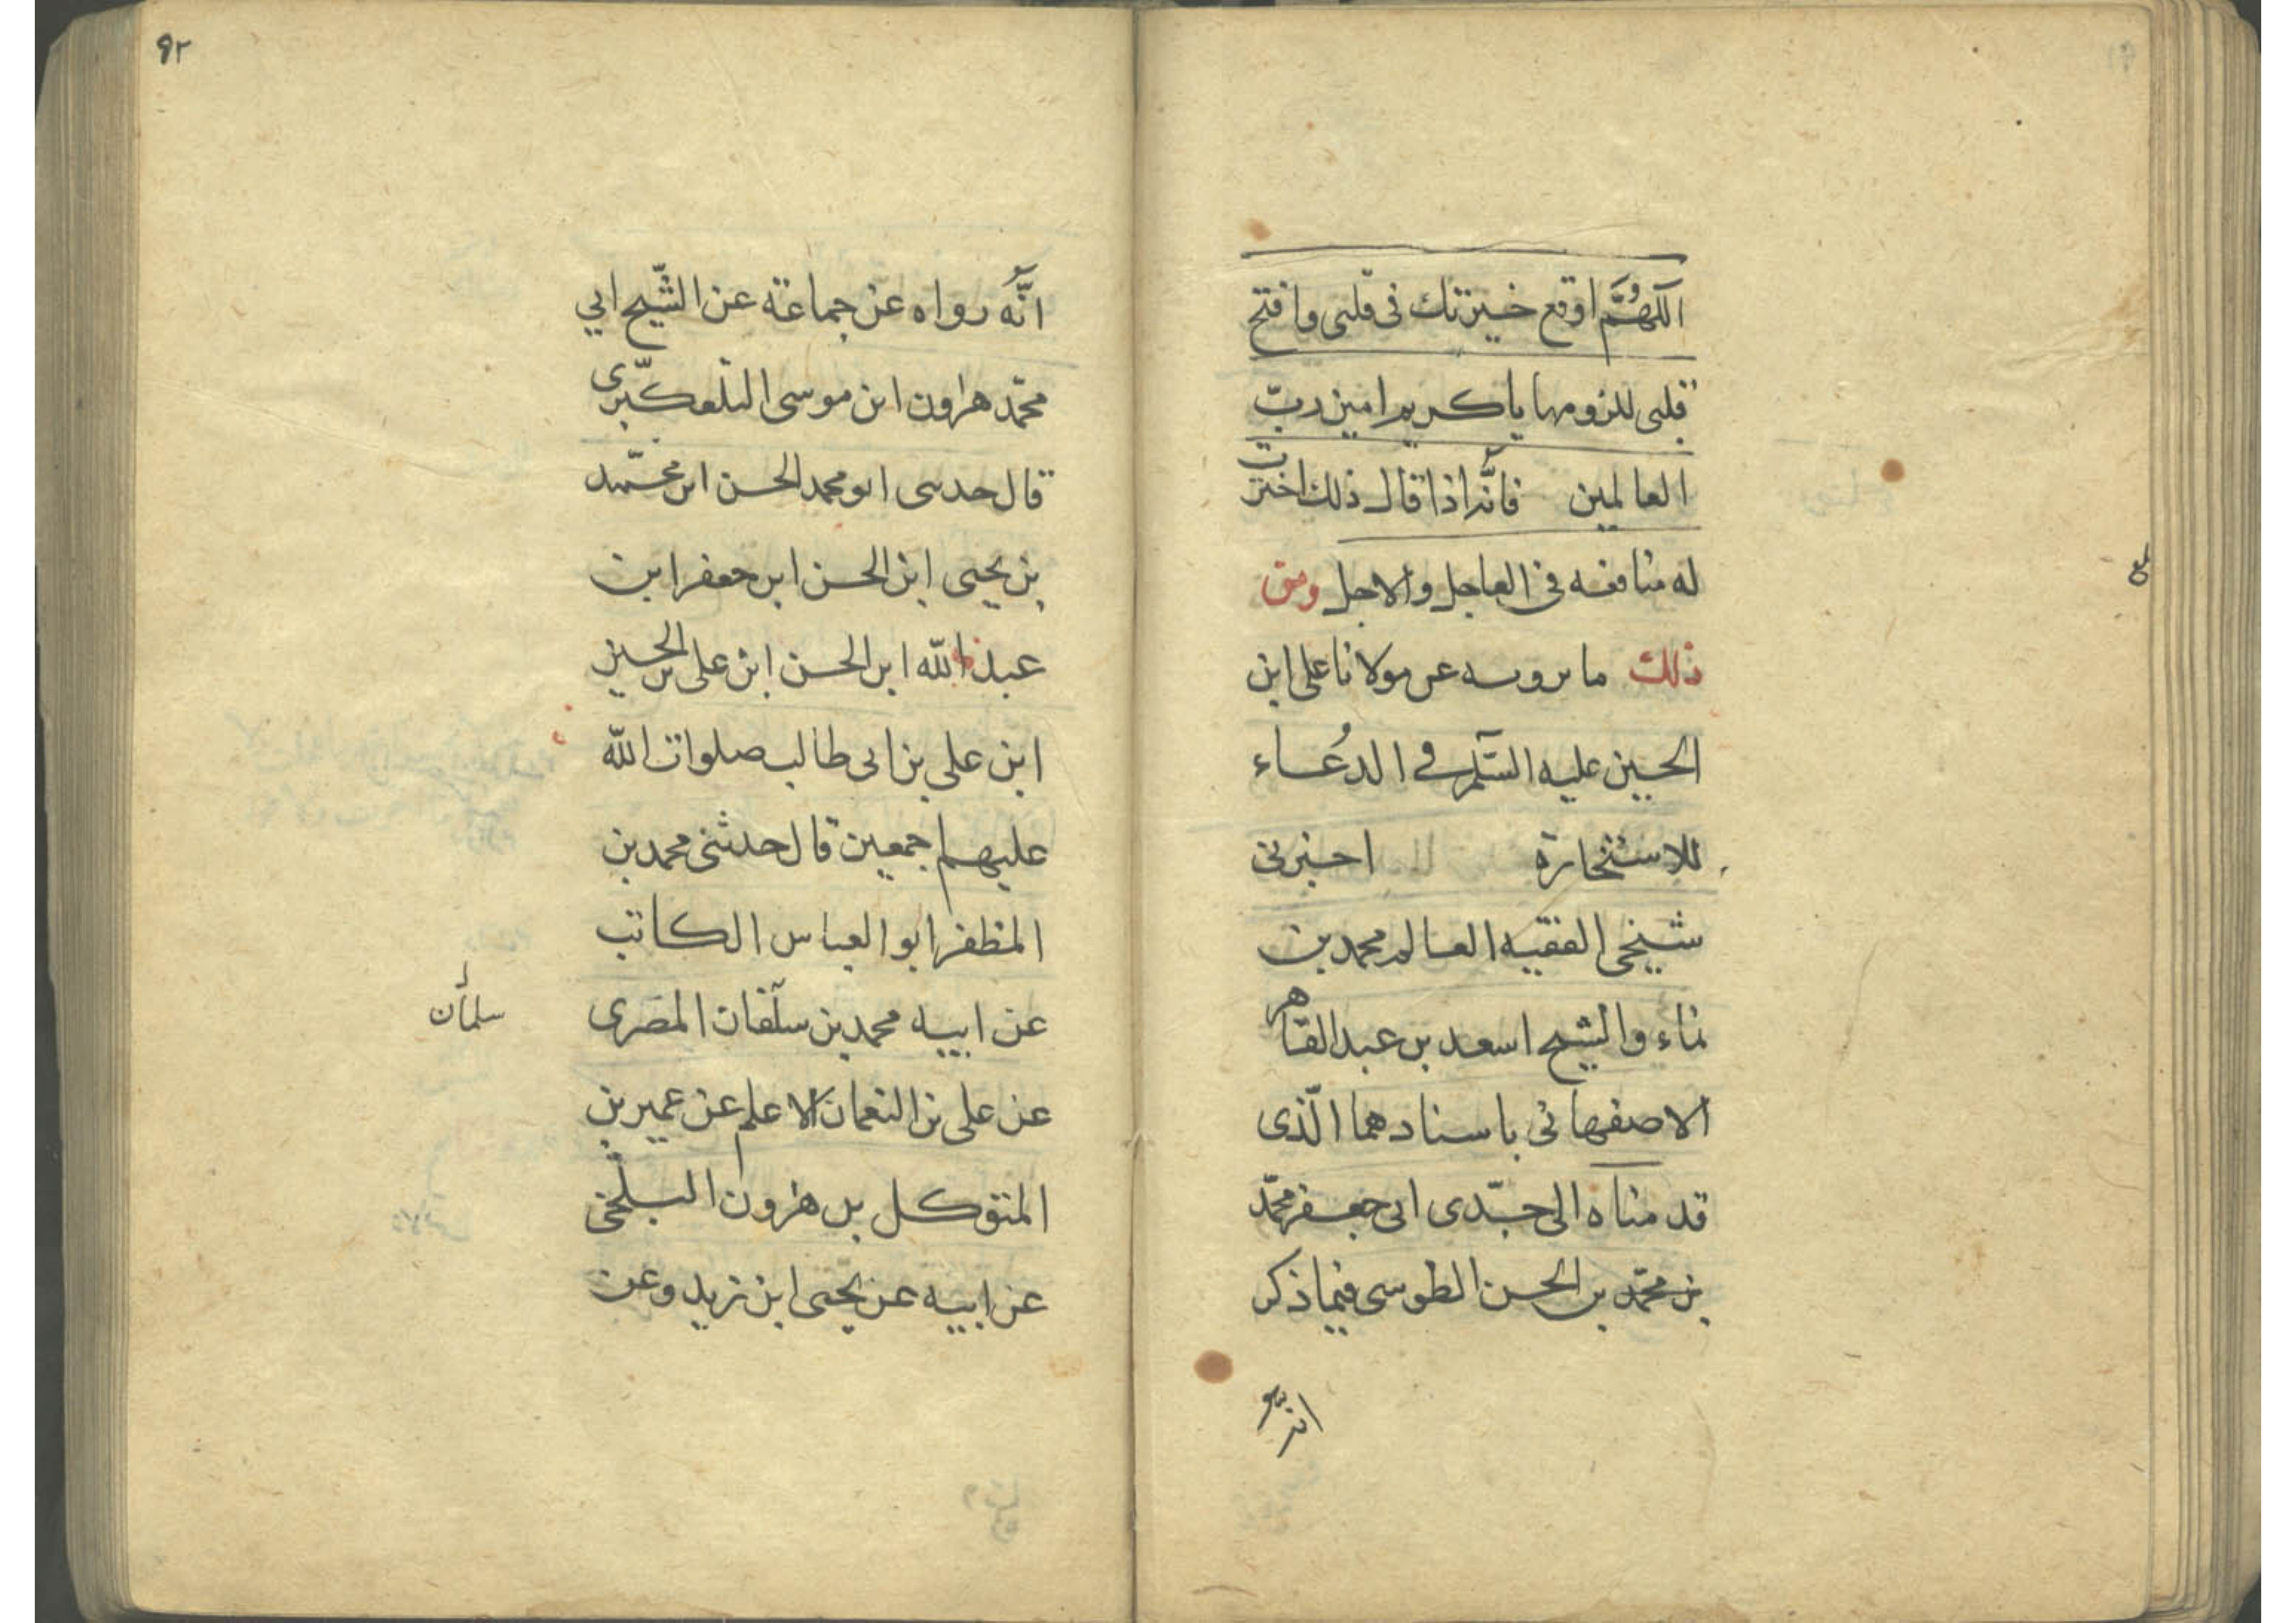 اللّهُمَّ اوقع خيرتك فى قلبى وافتح
قلبى للزومها يا كريم امين ربّ
العالمين فانّه اذا قال ذلك اخترت
له منافعه فى العاجل والاجل ومن
ذلك ما نرويه عن مولانا على ابن
الحسين عليه السّلم فى الدعُاء
للاستخارة اخبرنى
شيخى الفقيه العالم محمد بن
نماء والشيخ اسعد بن عبد القاهر
الاصفهانى باسنادهما الّذى
قدمناه الى جدّى ابى جعفر محمّد
بن محمّد بن الحسن الطوسى فيما ذكر
انّه
انَّه رواه عن جماعة عن الشّيخ ابي
محمّد هرون ابن موسى التلّعكبّرى
قال حدثنى ابو محمد الحسن ابن محمّد
بن يحيى ابن الحسن ابن جعفر ابن
عبد الله ابن الحسن ابن على بن الحسين
ابن على بن ابى طالب صلوات اللّه
عليهم اجمعين قال حدثنى محمد بن
المظفر ابو العباس الكاتب
عن ابيه محمد بن سلّقان المصرى
سلمان
عن على بن النعمان الاعلم عن عمير بن
المتوكل بن هرون البلخى
عن ابيه عن يحيى ابن زيد وعن
٩٢